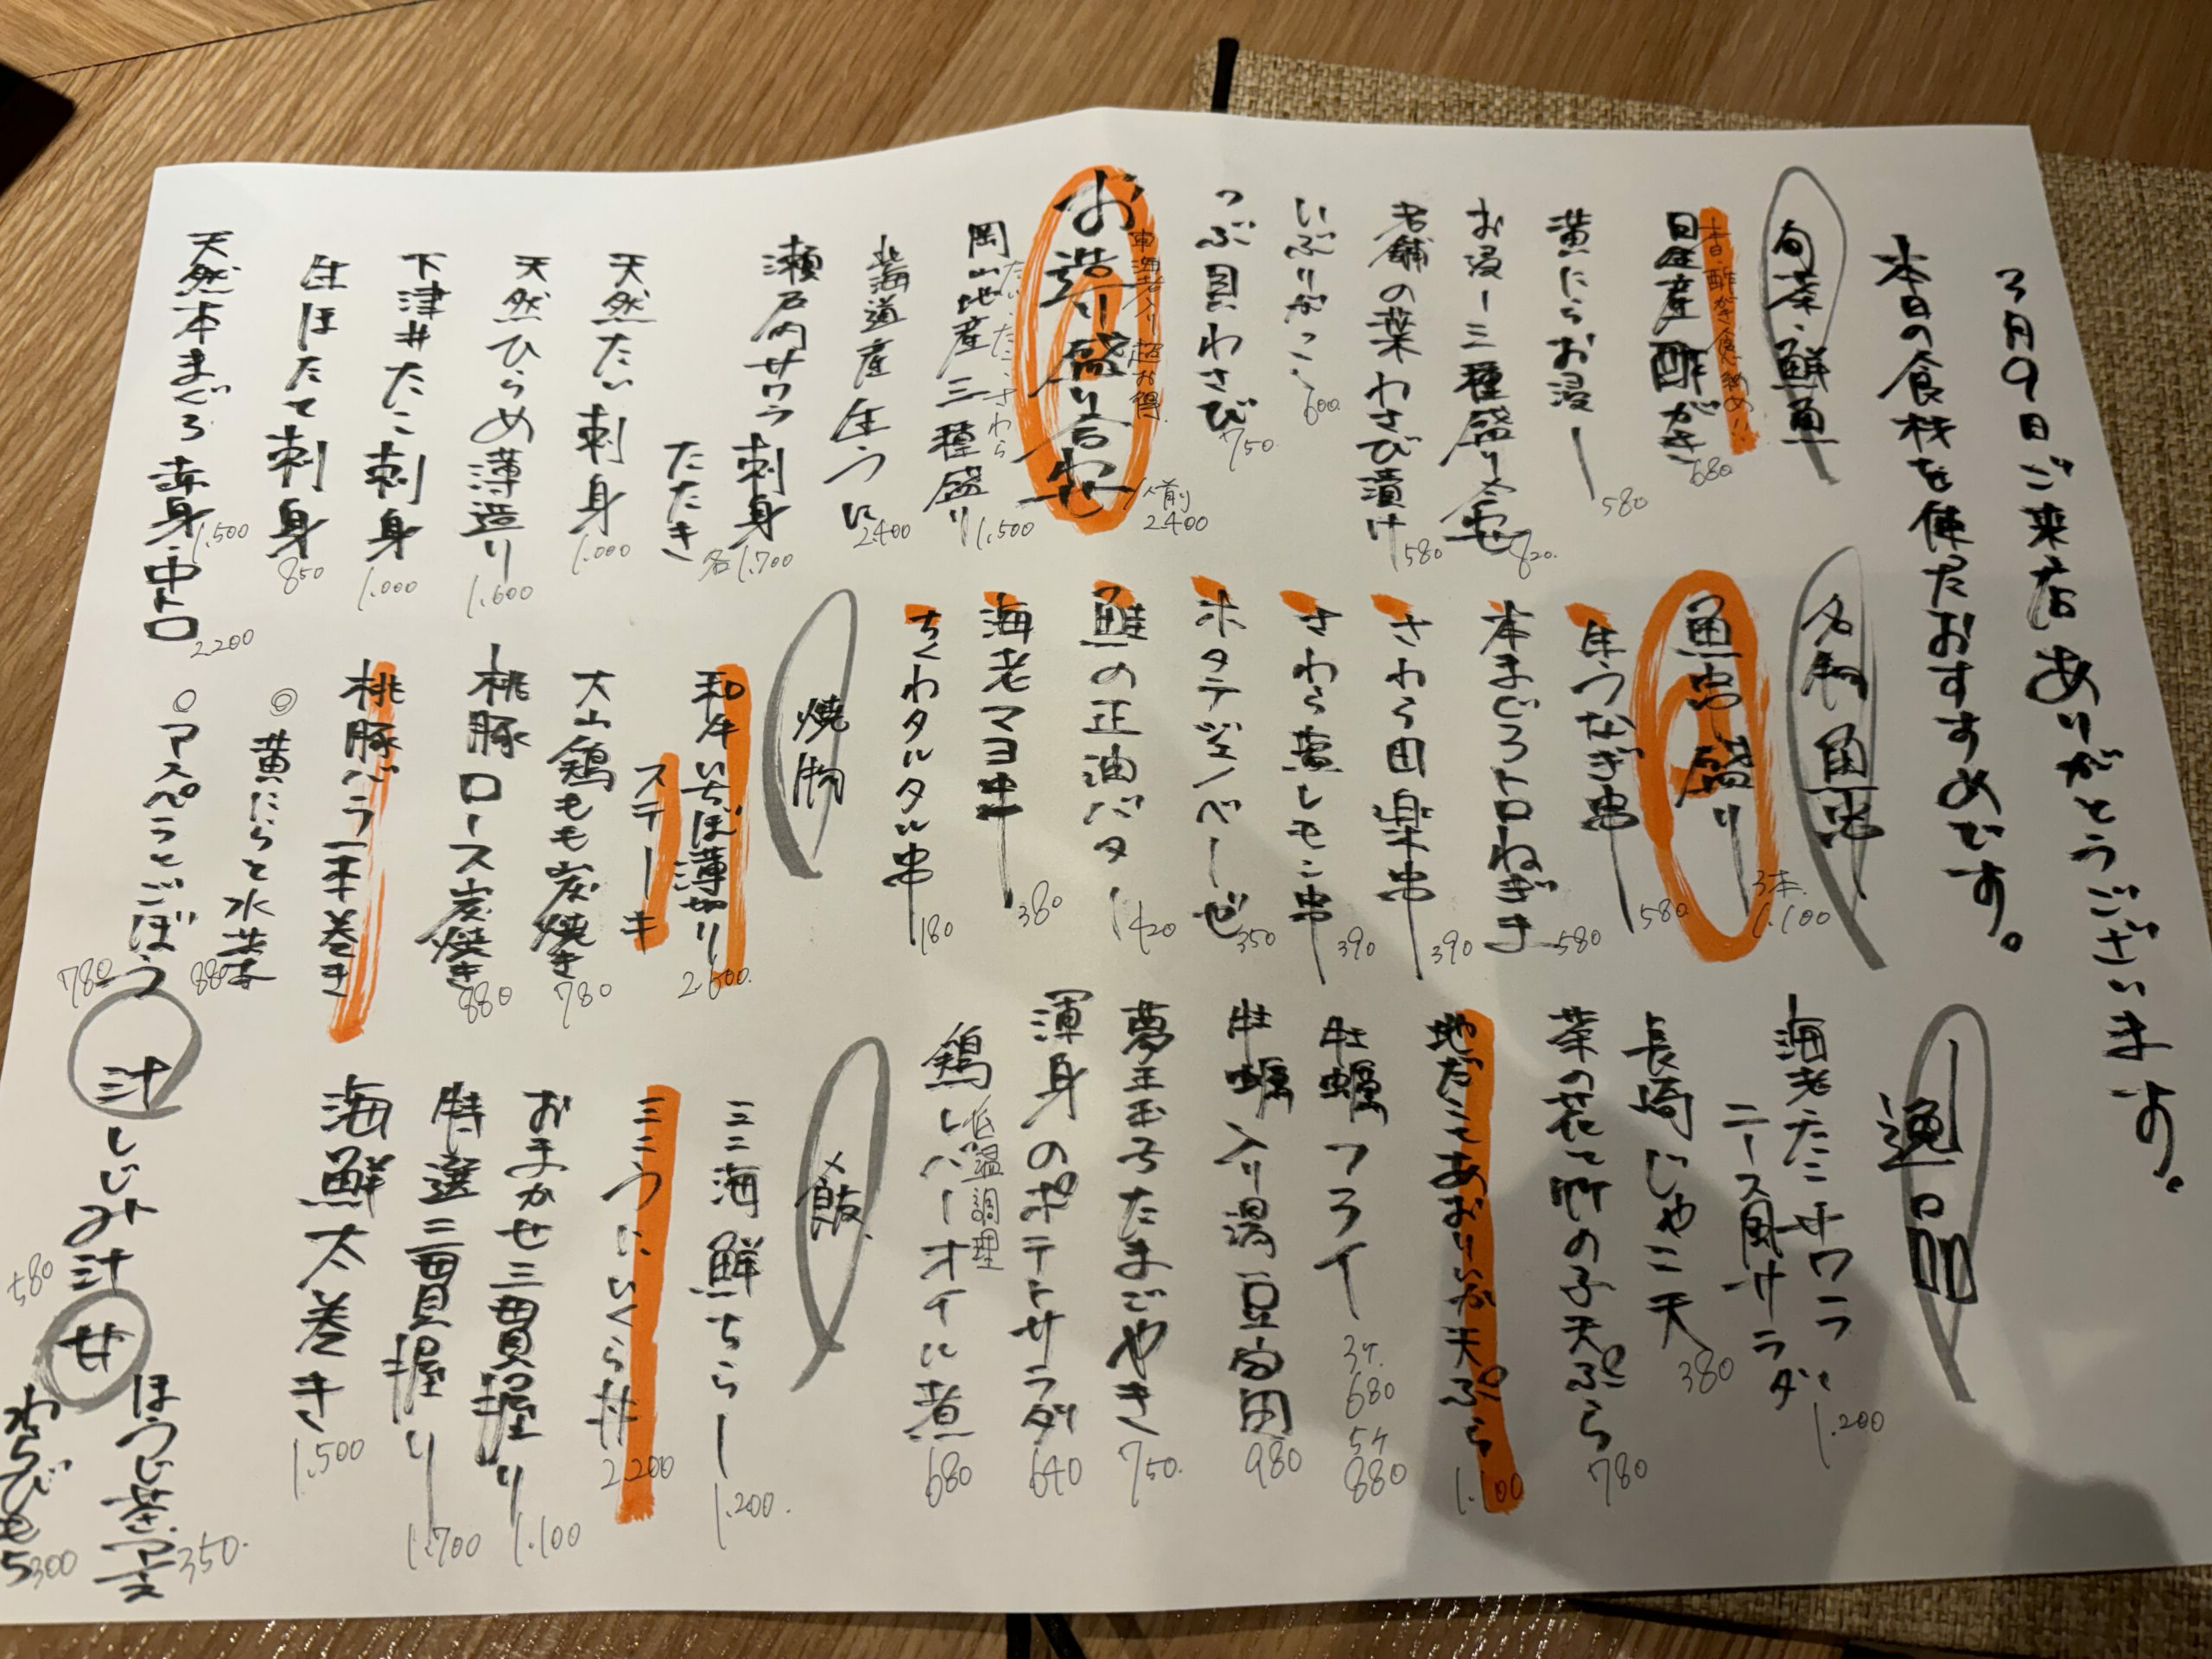 3月9日ご来店ありがとうございます。
本日の食材を使ったおすすめです。
旬菜・鮮魚
本日、酢がき食べ納め!!
日生産酢がき 680
黄にらお浸し 580
お浸し三種盛り合せ 820.
老舗の葉わさび漬け 580
いぶりがっこ 600
つぶ貝わさび 750
車海老入り超お得
お造り盛り合わせ 1人前 2400
たい、たこ、さわら
岡山地産三種盛り 1,500
北海道産生うに 2.400
瀬戸内サワラ刺身
たたき 各1.700
天然たい刺身 1.000
天然ひらめ薄造り 1.600
下津井たこ刺身 1.000
生ほたて刺身 850
天然本まぐろ赤身 1.500・中トロ 2.200
名物魚串
魚串盛り 3本 1.100
生うなぎ串 580
本まぐろトロねぎま 580
さわら田楽串 390
さわら藁レモン串 390
ホタテジェノベーゼ 350
鮭の正油バター 420
海老マヨ串 380
ちくわタルタル串 180
焼物
和牛いちぼ薄切り
ステーキ 2.600
大山鶏もも炭焼き 780
桃豚ロース炭焼き 880
桃豚バラ一本巻き
◎黄にらと水菜 880
○アスペラとごぼう 780
逸品
海老たこサワラ
ニース風サラダ 1.200
長崎じゃこ天 380
菜の花と竹の子天ぷら 780
地だことあおりいか天ぷら 1.100
牡蠣フライ 3ケ 680 5ケ 880
牡蠣入り湯豆腐 980
夢王玉子たまごやき 750.
渾身のポテトサラダ 640
低温調理
鶏レバーオイル煮 680
〆飯
ミニ海鮮ちらし 1.200.
ミニうにいくら丼 2.200
おまかせ三貫握り 1.100
特選三貫握り 1.700
海鮮太巻き 1.500
汁 しじみ汁 580
甘 ほうじ茶アイス 350.
わらびもち 300